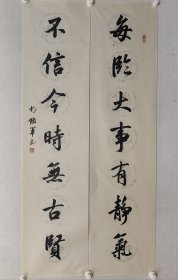 每临大事有静氣
不信今時無古賢